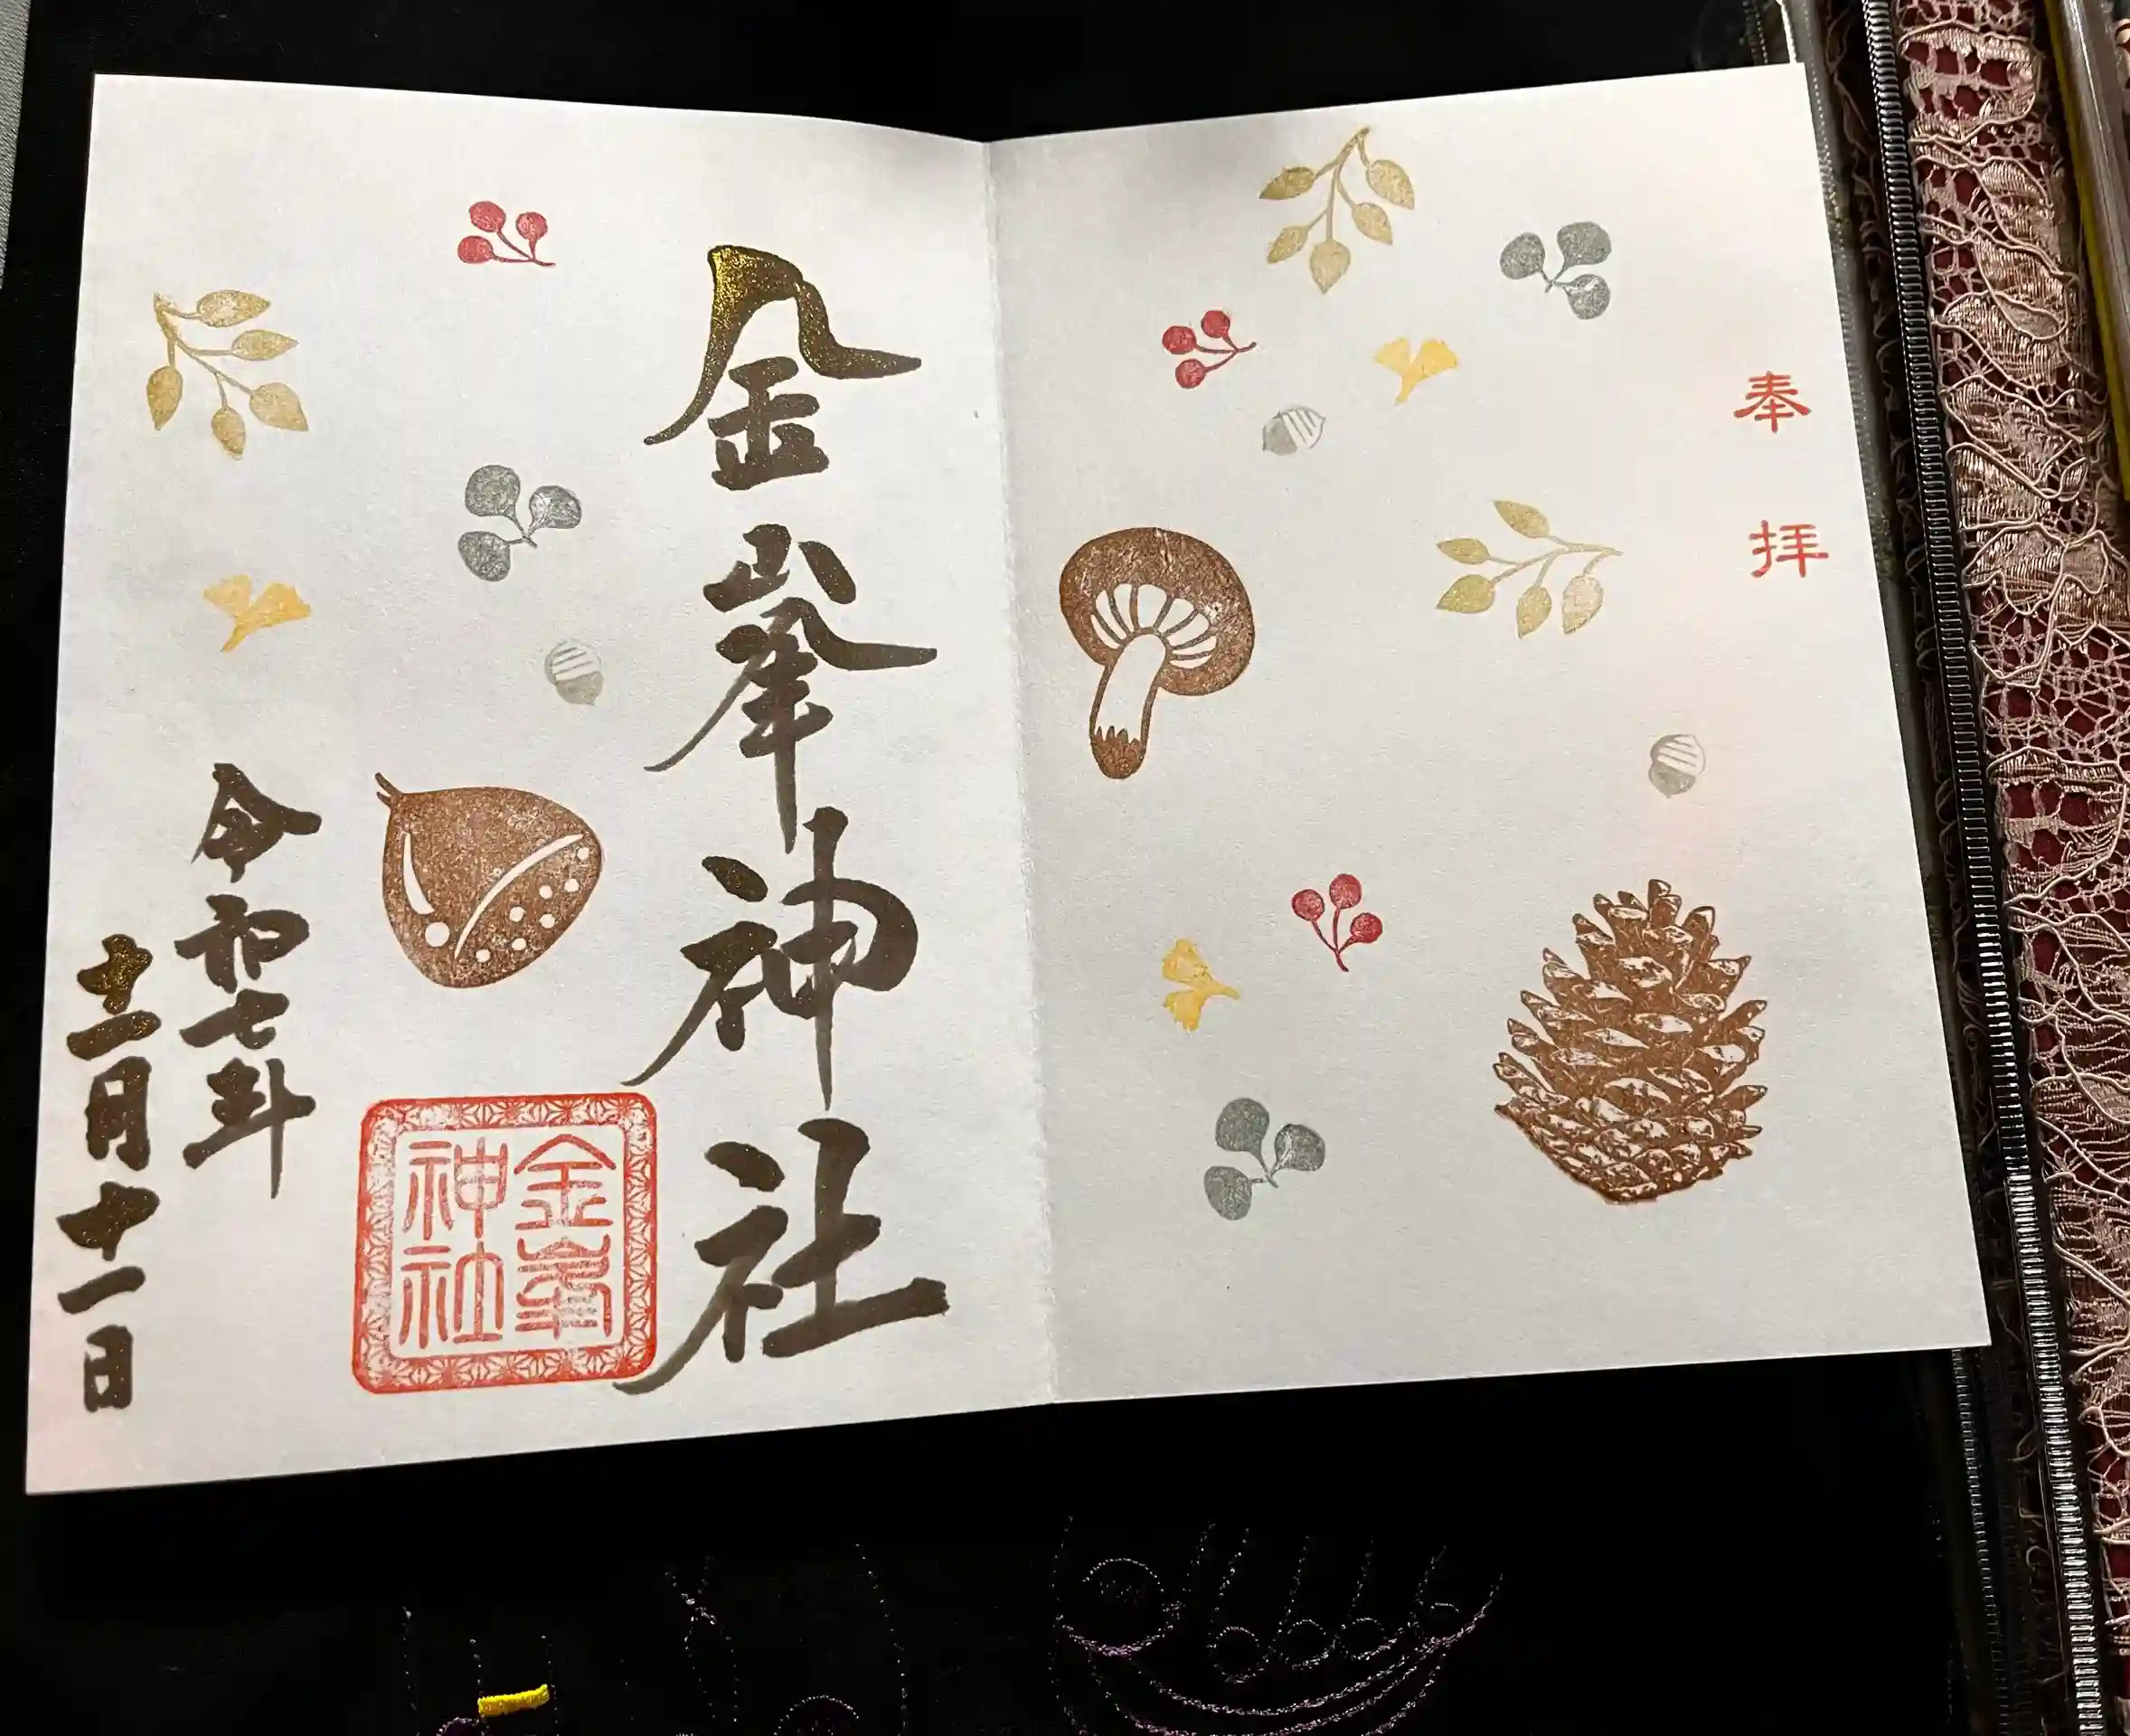 奉拝
金峯神社
金峯
神社
令和七年
十二月十一日